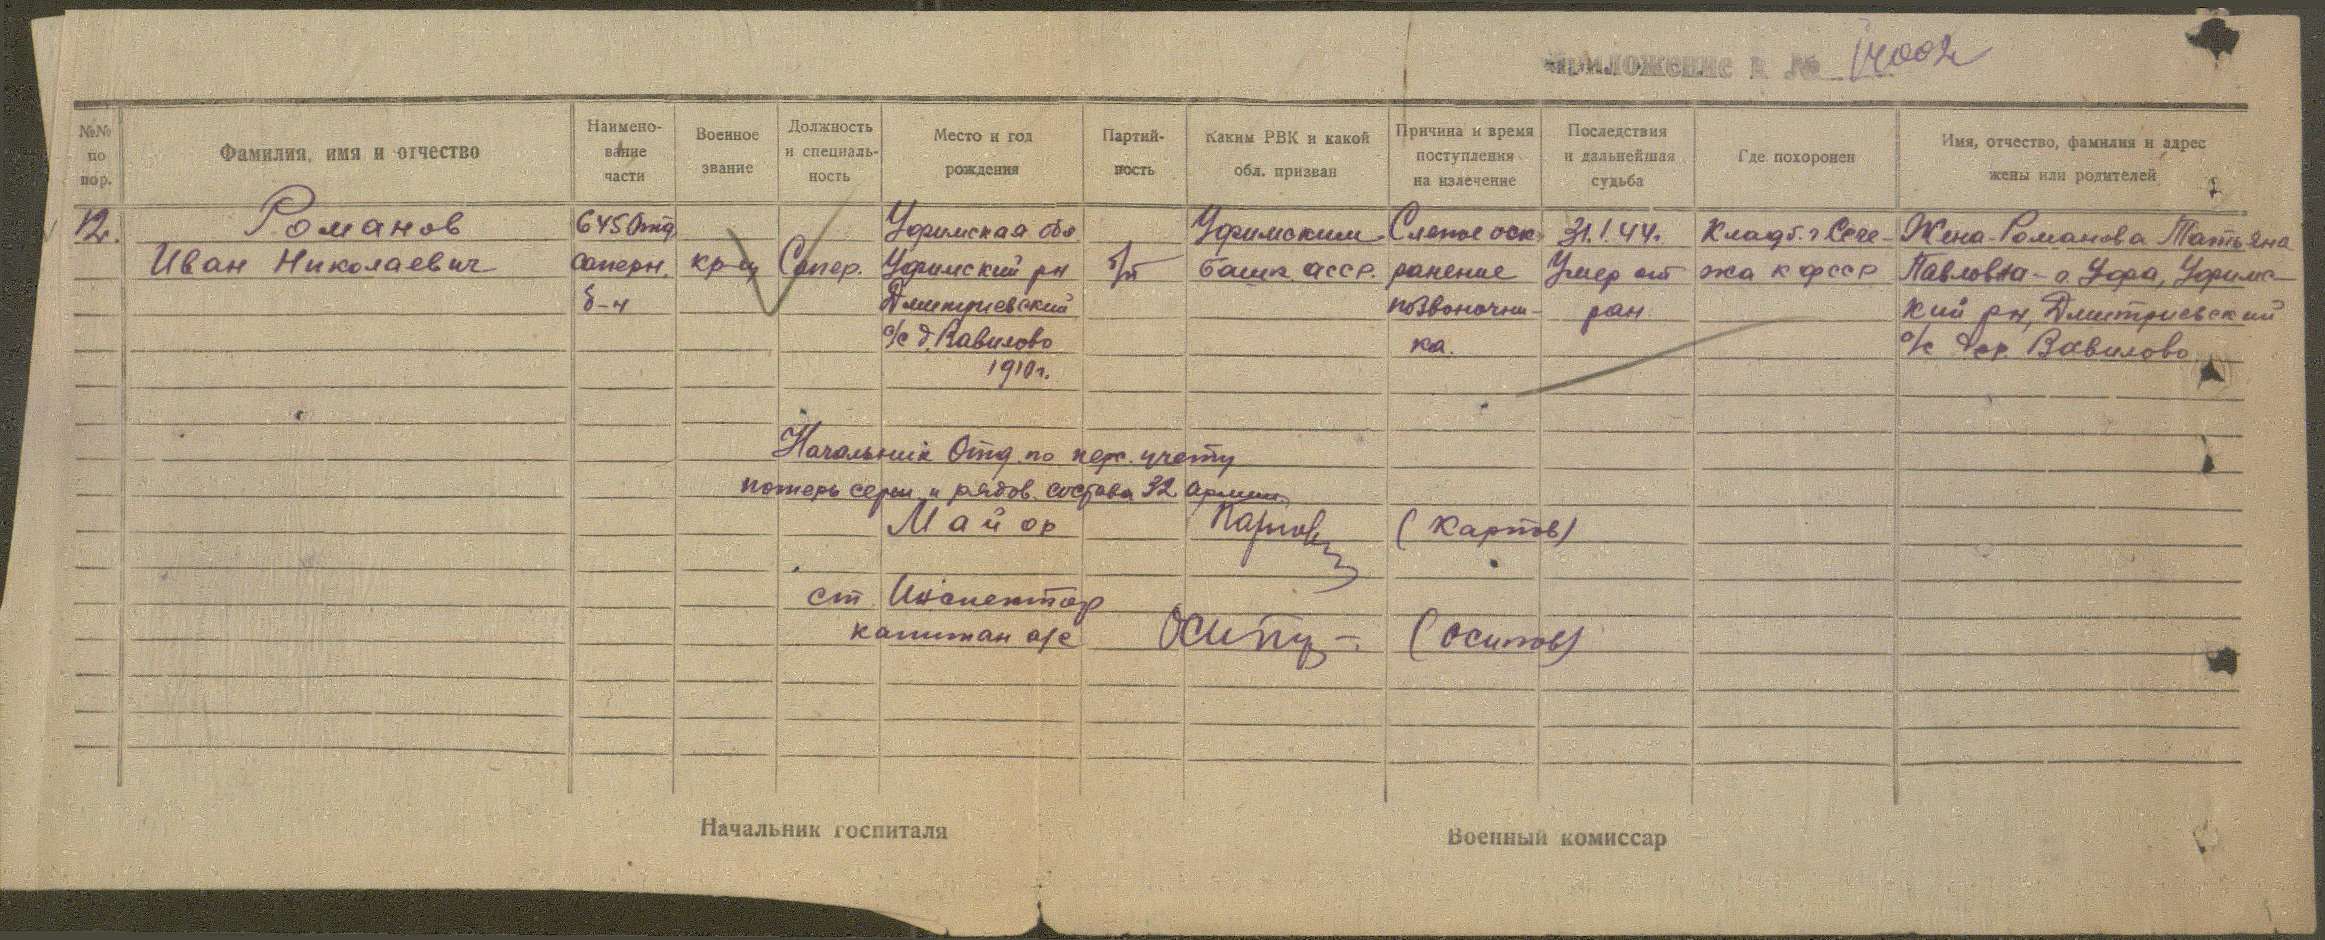 Приложение к № 14002
№№ по пор.
Фамилия, имя и отчество
Наимено-вание части
Военное звание
Должность и специаль-ность
Место и год рождения
Партий-ность
Каким РВК и какой обл. призван
Причина и время поступления на излечение
Последствия и дальнейшая судьба
Где похоронен
Имя, отчество, фамилия и адрес жены или родителей
12. Романов 645 Отд Уфимская обл Уфимским Слепое оск. 31.1.44. Кладб. г Сеге- Жена-Романова Татьяна
Иван Николаевич саперн. кр-ц Сапер. Уфимский рн б/п Башк. АССР. ранение Умер от жа КФССР Павловна - г. Уфа, Уфимс-
б-н Дмитриевский позвоночни- ран кий рн, Дмитриевский
с/с д. Вавилово ка. с/с дер. Вавилово
1910г.
Начальник Отд. по перс. учету
потерь серж. и рядов. состава 32 армии
Майор Карпов (Карпов)
ст. Инспектор
капитан а/с Осипов (Осипов)
Начальник госпиталя
Военный комиссар